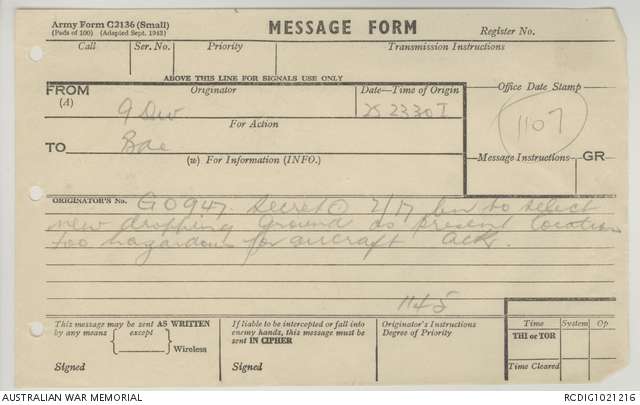 Army Form C2136 (Small)
(Pads of 100) (Adapted Sept. 1943)
MESSAGE FORM
Register No.
Call Ser. No. Priority Transmission Instructions
ABOVE THIS LINE FOR SIGNALS USE ONLY
FROM Originator Date—Time of Origin Office Date Stamp
(A) 9 Div 25 2330 I
1107
For Action
TO Bde
(W) For Information (INFO.) Message Instructions GR
ORIGINATOR'S No. GO947 Secret 2/17 bn to select
new dropping ground as present location
too hazardous for aircraft ack.
1145
This message may be sent AS WRITTEN
by any means except
Wireless
Signed
If liable to be intercepted or fall into
enemy hands, this message must be
sent IN CIPHER
Signed
Originator's Instructions
Degree of Priority
Time System Op
THI or TOR
Time Cleared
AUSTRALIAN WAR MEMORIAL RCDIG1021216